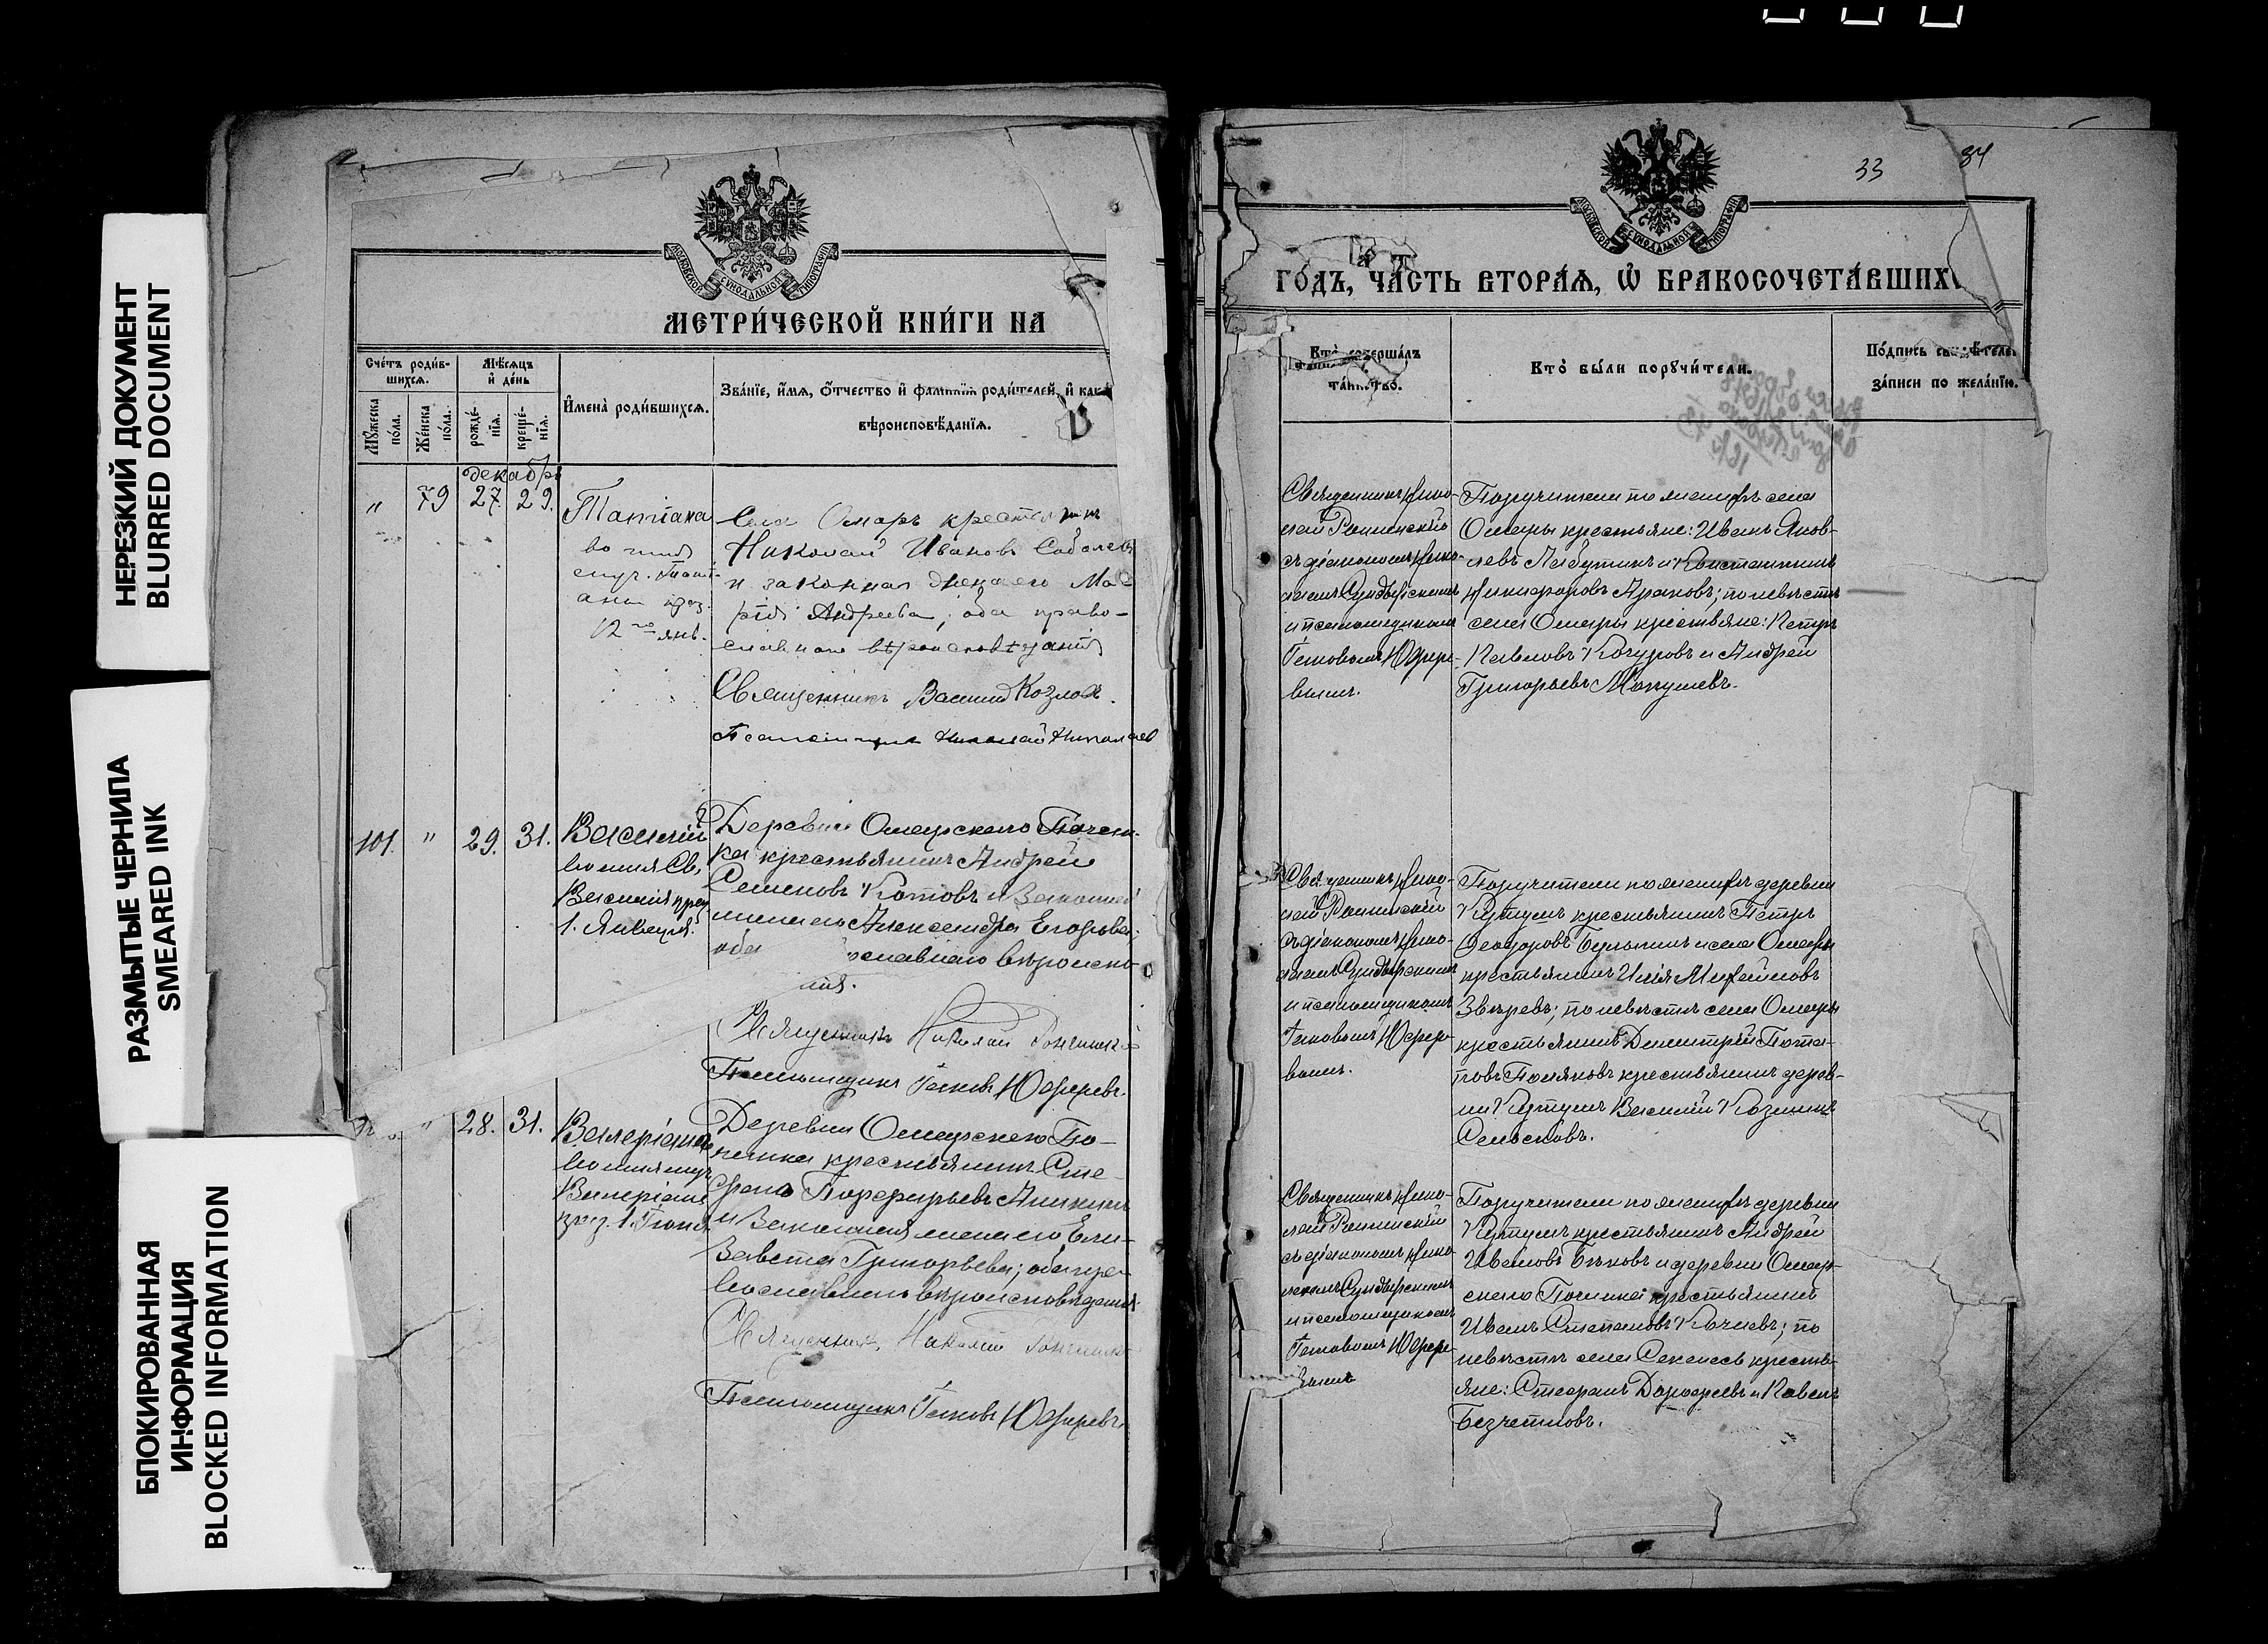 НЕРЕЗКИЙ ДОКУМЕНТ
BLURRED DOCUMENT
РАЗМЫТЫЕ ЧЕРНИЛА
SMEARED INK
БЛОКИРОВАННАЯ
ИНФОРМАЦИЯ
BLOCKED INFORMATION
МОСКОВСКОЙ СѴНОДАЛЬНОЙ ТИПОГРАФІИ
МЕТРИ́ЧЕСКОЙ КНИ́ГИ НА
Сче́тъ роди́в-
шихся.
Мѣ́сяцъ
и҆ де́нь
Мꙋ́жеска
по́ла.
Же́нска
по́ла.
рожде́-
нїя.
креще́-
нїя.
И҆мена̀ роди́вшихся.
Зва́нїе, и҆́мя, ѻ҆́тчество и҆ фамилїя роди́телей, и҆
вѣроисповѣ́данїя.
декабрь
" 79 27. 29.
Татіана
во имя
муч. Тати-
аны праз.
12го янв.
Села Омаръ крестьянинъ
Николай Ивановъ Соболевъ
и законная жена его Ма-
рія Андреева; оба право-
славнаго вѣроисповѣданія
Священникъ Василій Козлов.
Псаломщикъ Николай Николаев
101. " 29. 31.
Василій
во имя Св.
Василія праз.
1. Января.
Деревни Омарскаго Почин-
ка крестьянинъ Андрей
Семеновъ Котовъ и Законная
жена его Александра Егорова;
оба славнаго вѣроиспо-
нія.
Священникъ Николай
Псаломщикъ Іаковъ Юферевъ.
" 28. 31.
Валеріанъ
во имя муч.
Валеріана
праз. 1. Іюня
Деревни Омарскаго По-
чинка крестьянинъ Сте-
фанъ Порфирьевъ Аникинъ
и Законная жена его Ели-
завета Григорьева; оба пра-
вославнаго вѣроисповѣданія.
Священникъ Николай
Псаломщикъ Іаковъ Юферевъ.
33
34
МОСКОВСКОЙ СѴНОДАЛЬНОЙ ТИПОГРАФІИ
ГО́ДЪ, ЧА́СТЬ ВТОРА́Я, Ѡ҆ БРАКОСОЧЕТА́ВШИХ
Кто̀ соверша́лъ
та́инство.
Кто̀ бы́ли порꙋчи́тели.
По́дпись свидѣ́теле
за́писи по жела́нїю.
Священникъ Нико-
лай
съ діакономъ Нико-
лаемъ Сундырскимъ
и псаломщикомъ
Іаковомъ Юфере-
вымъ.
Поручители по женихѣ села
Омары крестьяне: Иванъ Яков-
левъ Лабутинъ и Константинъ
Никифоровъ Араповъ; по невѣстѣ
села Омары крестьяне: Петръ
Павловъ Кочуровъ и Андрей
Григорьевъ Мокушевъ.
Священникъ Нико-
лай
съ діакономъ Нико-
лаемъ Сундырскимъ
и псаломщикомъ
Іаковомъ Юфере-
вымъ.
Поручители по женихѣ деревни
крестьянинъ Петръ
Ѳеодоровъ и села Омары
крестьянинъ Илія Михайловъ
Звѣревъ; по невѣстѣ села Омары
крестьянинъ Димитрій Пота-
повъ Поляковъ крестьянинъ дерев-
ни Василій Козминъ
Священникъ Нико-
лай
съ діакономъ Нико-
лаемъ Сундырскимъ
и псаломщикомъ
Іаковомъ Юфере-
вымъ
Поручители по женихѣ деревни
крестьянинъ Андрей
Ивановъ Быковъ и деревни Омар-
скаго Починка крестьянинъ
Иванъ Степановъ; по
невѣстѣ села Секенесь кресть-
яне: Стефанъ Дорофеевъ и Павелъ
Безчетновъ.